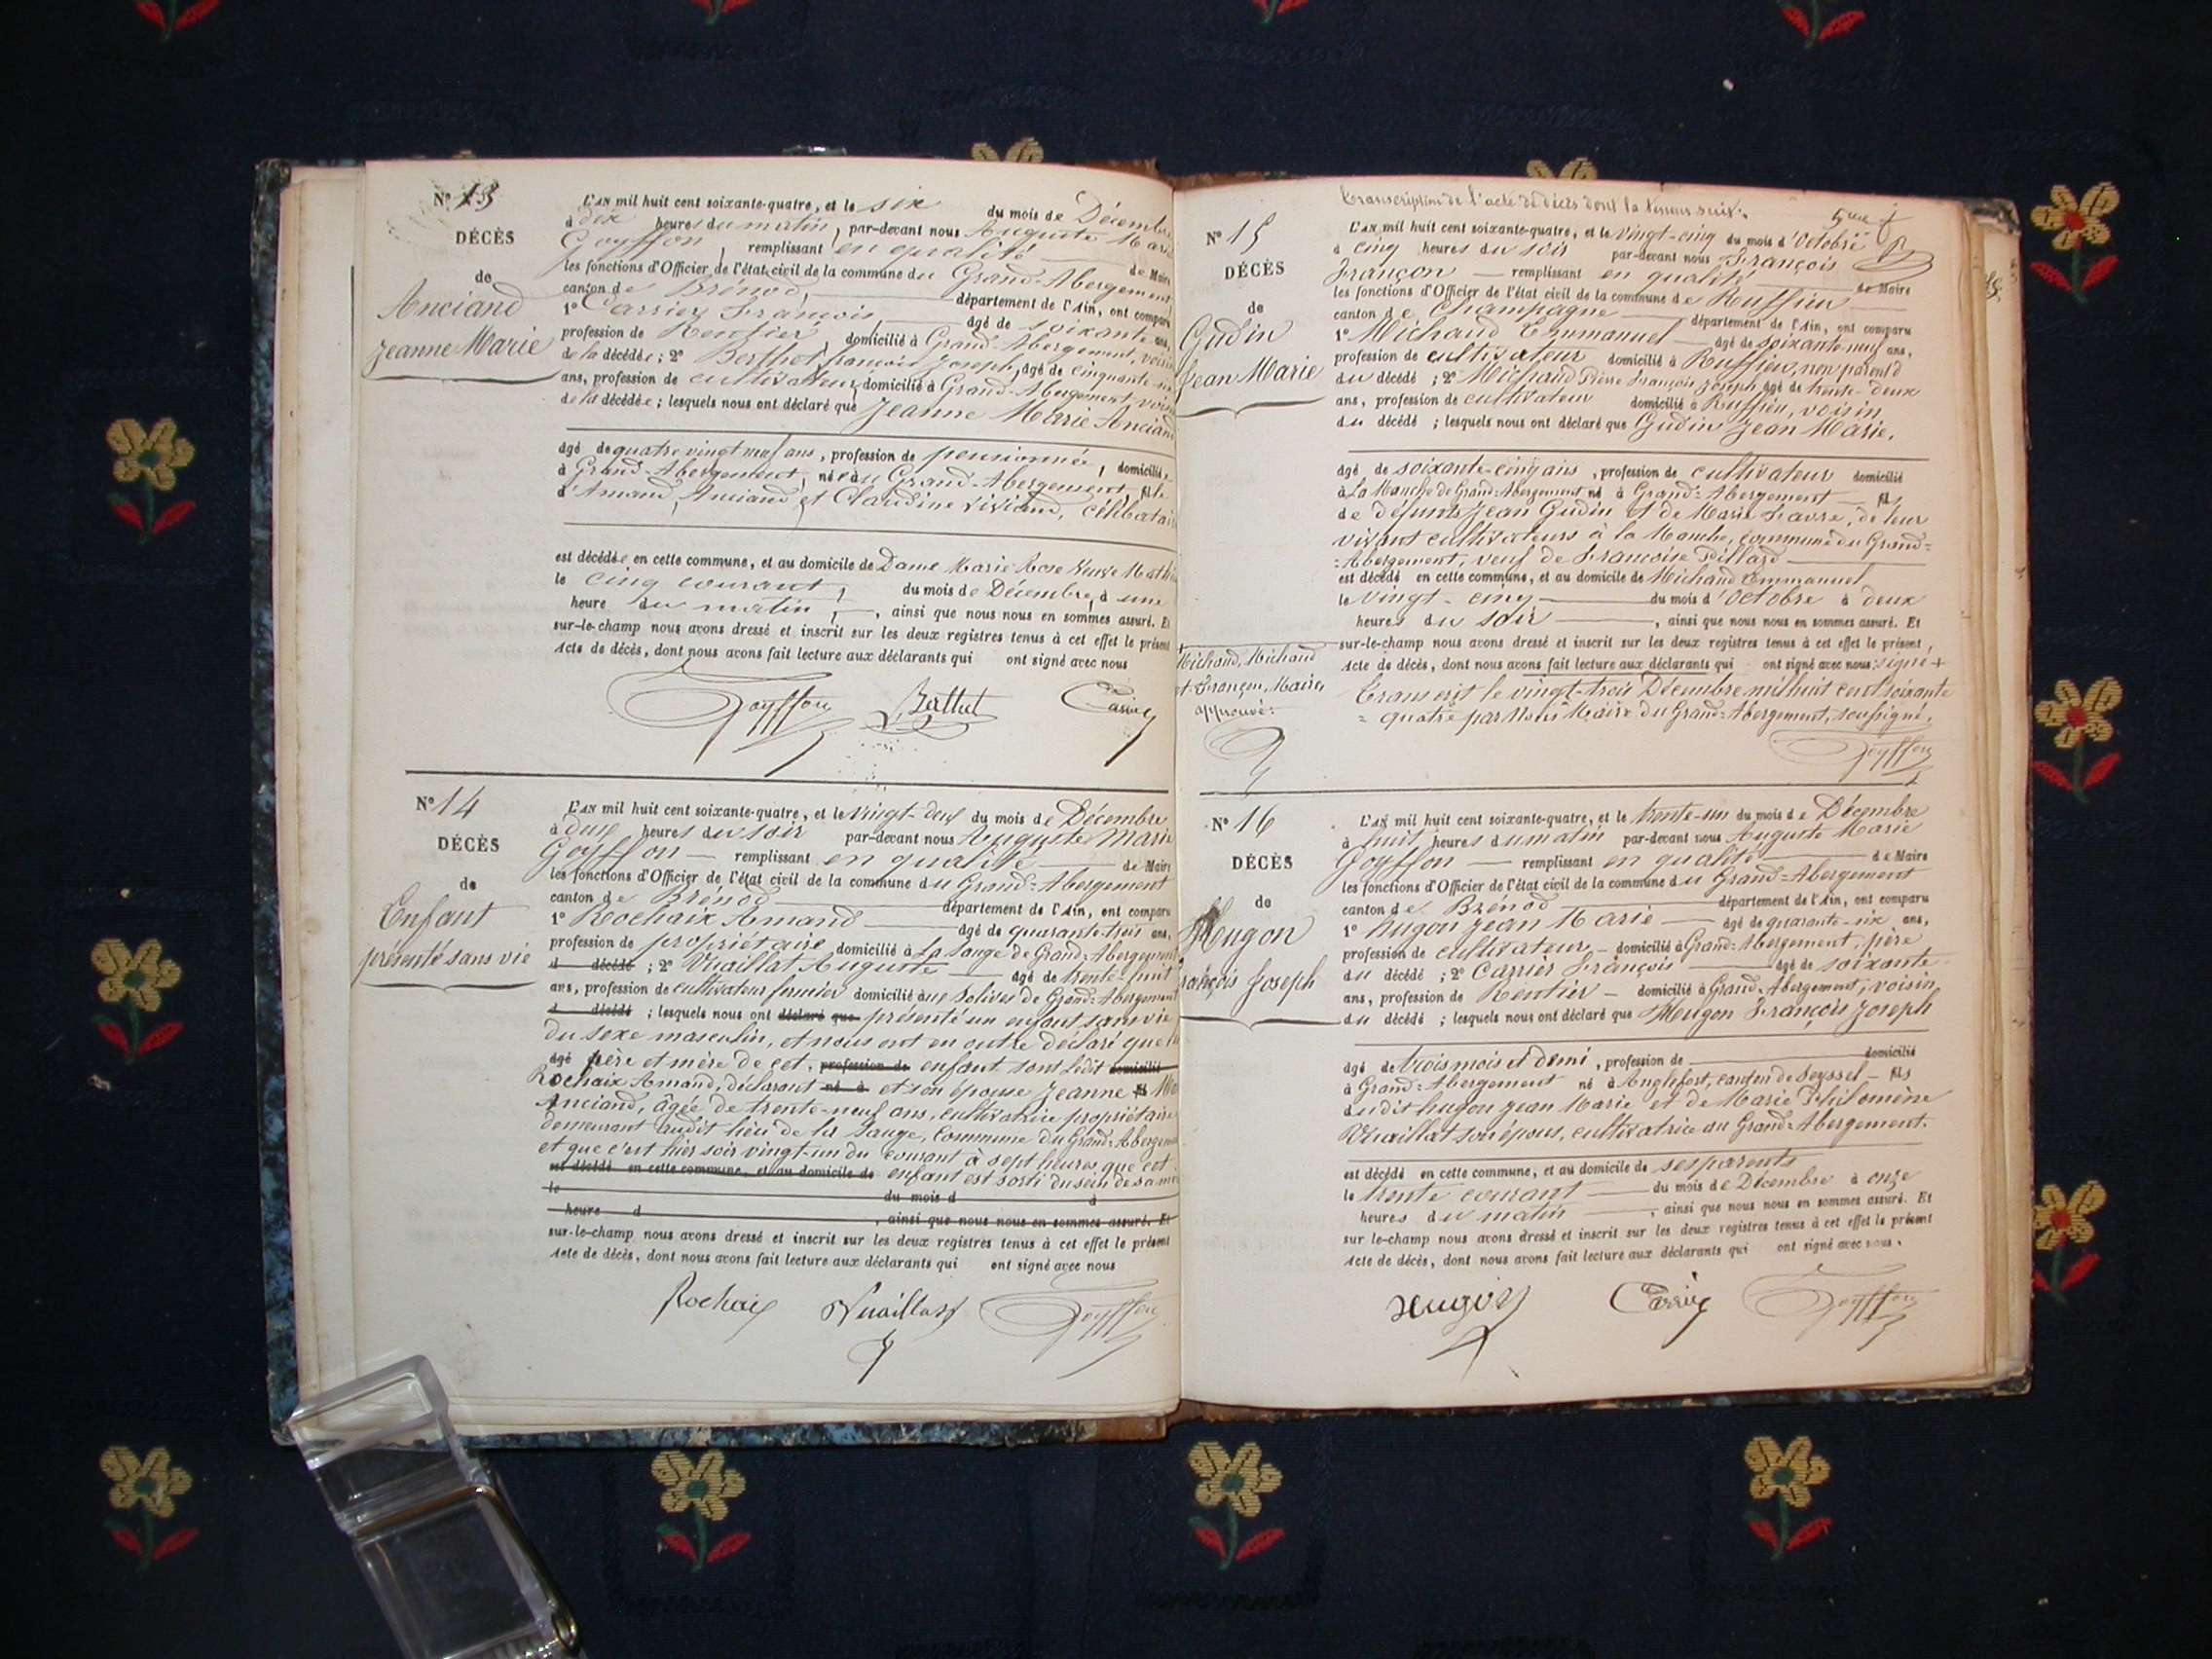 N° 13
DÉCÈS
de
Anciand
Jeanne Marie
L'AN mil huit cent soixante-quatre, et le six du mois de Décembre
à dix heures du matin, par-devant nous Auguste Marie
Goyffon, remplissant en qualité de Maire
les fonctions d'Officier de l'état civil de la commune du Grand-Abergement
canton de Brénod, département de l'Ain, ont comparu
1° Carrier François, âgé de soixante ans,
profession de Rentier, domicilié à Grand-Abergement, voisin
de la décédée; 2° Berthet françois Joseph, âgé de cinquante-
ans, profession de cultivateur, domicilié à Grand-Abergement voisin
de la décédée; lesquels nous ont déclaré que Jeanne Marie Anciand
âgé de quatre vingt neuf ans, profession de pensionnée, domiciliée
à Grand-Abergement, née au Grand-Abergement, fille
d'Amand Anciand et Claudine Viviand, célibataire
est décédée en cette commune, et au domicile de Dame Marie Rose Veuve
le cinq courant, du mois de Décembre, à une
heure du matin, ainsi que nous nous en sommes assuré. Et
sur-le-champ nous avons dressé et inscrit sur les deux registres tenus à cet effet le présent
Acte de décès, dont nous avons fait lecture aux déclarants qui ont signé avec nous
Goyffon Berthet Carrier
N° 14
DÉCÈS
de
Enfant
présenté sans vie
L'AN mil huit cent soixante-quatre, et le vingt-deux du mois de Décembre
à deux heures du soir par-devant nous Auguste Marie
Goyffon remplissant en qualité de Maire
les fonctions d'Officier de l'état civil de la commune du Grand-Abergement
canton de Brénod département de l'Ain, ont comparu
1° Rochaix Amand âgé de quarante-trois ans,
profession de propriétaire domicilié à La Sauge de Grand-Abergement
d décédé; 2° Vuaillat Auguste âgé de trente-huit
ans, profession de cultivateur fermier domicilié aux Solives de Grand-Abergement
d décédé; lesquels nous ont déclaré que présenté un enfant sans vie
du sexe masculin, et nous ont en outre déclaré que les
âgé père et mère de cet, profession de enfant sont ledit domicilié
Rochaix Amand, déclarant né à et son épouse Jeanne fils
Anciand, âgée de trente-neuf ans, cultivatrice propriétaire
demeurant audit lieu de la Sauge, Commune du Grand-Abergement
et que c'est hier soir vingt-un du courant à sept heures que cet
est décédé en cette commune, et au domicile de enfant est sorti du sein de sa mère
le du mois d à
heure d, ainsi que nous nous en sommes assuré. Et
sur-le-champ nous avons dressé et inscrit sur les deux registres tenus à cet effet le présent
Acte de décès, dont nous avons fait lecture aux déclarants qui ont signé avec nous
Rochaix Vuaillat Goyffon
Transcription de l'acte de décès dont la teneur suit:
N° 15
DÉCÈS
de
Gudin
Jean Marie
L'AN mil huit cent soixante-quatre, et le vingt-cinq du mois d'Octobre
à cinq heures du soir par-devant nous François
Françon remplissant en qualité de Maire
les fonctions d'Officier de l'état civil de la commune de Ruffieu
canton de Champagne département de l'Ain, ont comparu
1° Michaud Emmanuel âgé de soixante-neuf ans,
profession de cultivateur domicilié à Ruffieu, non parent
du décédé; 2° Michaud Pierre François Joseph âgé de trente-deux
ans, profession de cultivateur domicilié à Ruffieu, voisin
du décédé; lesquels nous ont déclaré que Gudin Jean Marie,
âgé de soixante-cinq ans, profession de cultivateur domicilié
à La Manche de Grand-Abergement né à Grand-Abergement fils
de défunts Jean Gudin et de Marie Favre, de leur
vivant cultivateurs à la Manche, commune du Grand-
-Abergement, veuf de Françoise Billard
est décédé en cette commune, et au domicile de Michaud Emmanuel
le Vingt-cinq du mois d'Octobre à deux
heures du soir, ainsi que nous nous en sommes assuré. Et
sur-le-champ nous avons dressé et inscrit sur les deux registres tenus à cet effet le présent,
Acte de décès, dont nous avons fait lecture aux déclarants qui ont signé avec nous: signé +
Michaud, Michaud
et Françon, Maire,
approuvé:
Transcrit le vingt-trois Décembre mil huit cent soixante
-quatre par Nous Maire du Grand-Abergement, soussigné.
Goyffon
N° 16
DÉCÈS
de
Hugon
François Joseph
L'AN mil huit cent soixante-quatre, et le trente-un du mois de Décembre
à huit heures du matin par-devant nous Auguste Marie
Goyffon remplissant en qualité de Maire
les fonctions d'Officier de l'état civil de la commune du Grand-Abergement
canton de Brénod département de l'Ain, ont comparu
1° Hugon Jean Marie âgé de quarante-six ans,
profession de cultivateur domicilié à Grand-Abergement, père
du décédé; 2° Carrier François âgé de soixante
ans, profession de Rentier domicilié à Grand-Abergement, voisin
du décédé; lesquels nous ont déclaré que Hugon François Joseph
âgé de trois mois et demi, profession de domicilié
à Grand-Abergement né à Anglefort, canton de Seyssel fils
dudit hugon Jean Marie et de Marie Philomène
Vuaillat son épouse, cultivatrice au Grand-Abergement.
est décédé en cette commune, et au domicile de ses parents
le trente courant du mois de Décembre à onze
heures du matin, ainsi que nous nous en sommes assuré. Et
sur le-champ nous avons dressé et inscrit sur les deux registres tenus à cet effet le présent
Acte de décès, dont nous avons fait lecture aux déclarants qui ont signé avec nous.
Hugon Carrier Goyffon